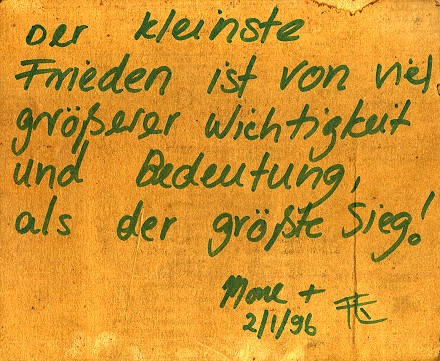 Der kleinste
Frieden ist von viel
größerer Wichtigkeit
und Bedeutung,
als der größte Sieg!
Mone +
2/1/96